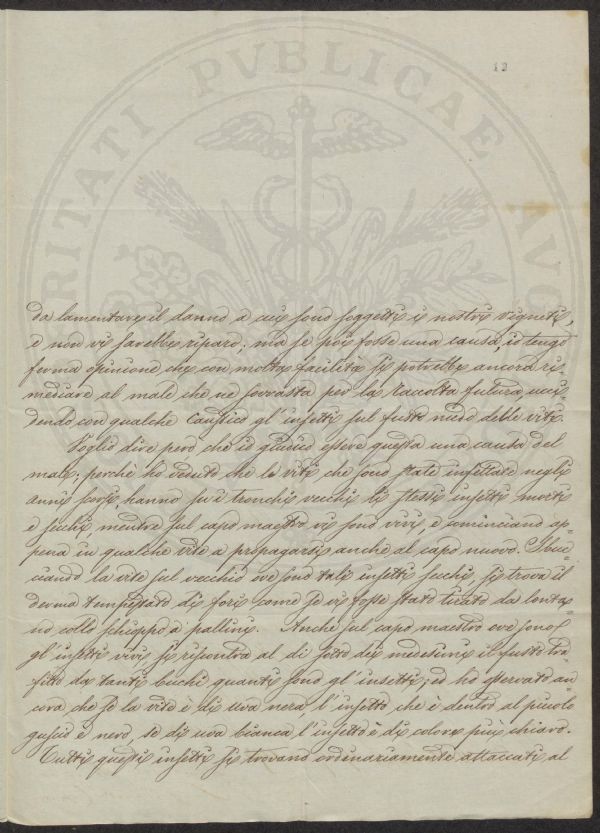 12
RITATI PVBLICAE AVO
da lamentare il danno a cui sono soggetti i nostri vigneti,
e non vi sarebbe riparo; ma se poi fosse una causa, io tengo
ferma opinione che con molta facilità si potrebbe ancora ri-
mediare al male che ne sovrasta per la raccolta futura ucci-
dendo con qualche caustico gl'insetti sul fusto nudo delle viti.
Voglio dire però che io giudico essere questa una causa del
male; perchè ho veduto che le viti che sono state infettate negli
anni scorsi, hanno su i tronchi vecchi gli stessi insetti morti
e secchi mentre sul capo maestro vi sono vivi, e cominciano ap-
pena in qualche vite a propagarsi anche al capo nuovo. Sbuc-
ciando la vite sul vecchio ove sono tali insetti secchi, si trova il
derma tempestato di fori come se vi fosse stato tirato da lonta-
no collo schioppo a pallini. Anche sul capo maestro ove sono
gl'insetti vivi, si riscontra al di sotto di medesimi il fusto tra-
fitto da tanti buchi quanti sono gl'insetti; ed ho osservato an-
cora che se la vite è di uva nera, l'insetto che è dentro al piccolo
guscio è nero, se di uva bianca l'insetto è di colore più chiaro.
Tutti questi insetti si trovano ordinariamente attaccati al